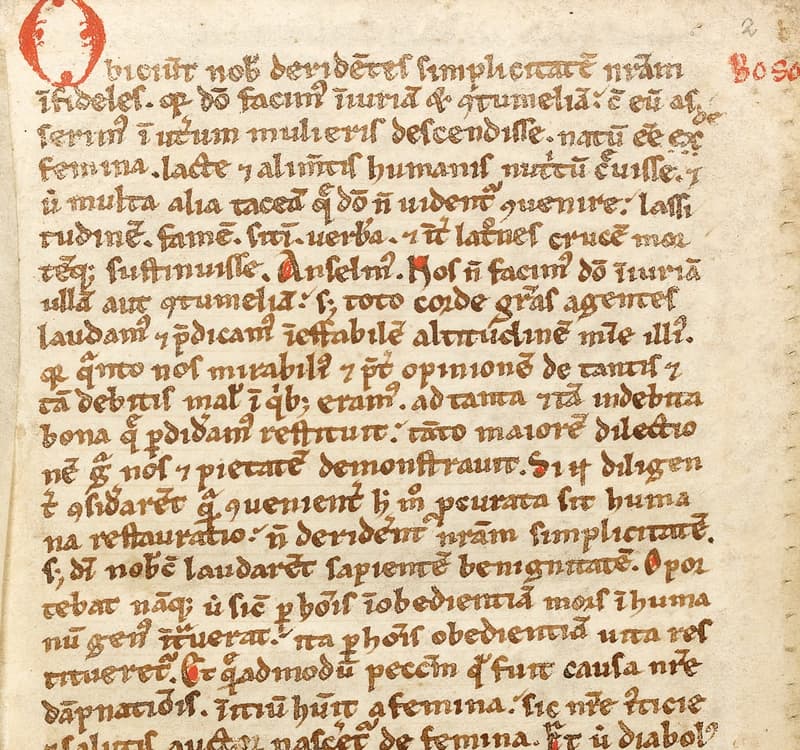 2
Boso
Obiciūt nob̄ deridētes simplicitatē nr̄am
īfideles. qr dō facimꝰ īiuriā & ꝯtumeliā: c̄ eū as
serimꝰ ī ut̄um mulieris descendisse. natū eē de ex
femina. lacte ⁊ alim̄tis humanis nutͥtū c̄uisse. ⁊
ù multa alia taceā q̄ dō n̄ uident᷑ ꝯuenire: lassi
tudinē. famē. sitī. verb̾a. ⁊ int̄ lat̾nes crucē mor
tēq; sustinuisse. Anselmꝰ. Nos n̄ facimꝰ dō īiuriā
ullā aut ꝯtumeliā: s; toto corde gr̄as agentes
laudamꝰ ⁊ p̄dicamꝰ īeffabilē altitudinē mīe illiꝰ.
qr q̄nto nos mirabiliꝰ ⁊ p̄t̾ opinionē de tantis ⁊
tā debitis mal̾ ī qͥb; eramꝰ. ad tanta ⁊ tā indebita
bona q̄ ꝑdid̾amꝰ restituit: tāto maiorē dilectio
nē g̾ nos ⁊ pietatē demonstrauit. Si .n. diligen
t̾ ꝯsid̾arēt q̄ ꝯuenient̾ h̾ mͦ ꝓcurata sit huma
na restauratio: n̄ derid̾ent nr̄am simplicitatē.
s; dī nobc̄ laudarēt sapientē benignitatē. Opor
tebat nāq; ù sic̄ ꝑ hoīs īobedientiā mors ī huma
nū genꝰ īt̾uerat: ita ꝑ hoīs obedientiā uita res
titueret᷑. Et q̄admodū pecc̄m qͩ fuit causa nr̄e
dāpnatiōis. īitiū hūit a femina: sic nr̄e iͥticie
⁊ salutis auctor nascēt᷑ de femina. Et ù diabolꝰ